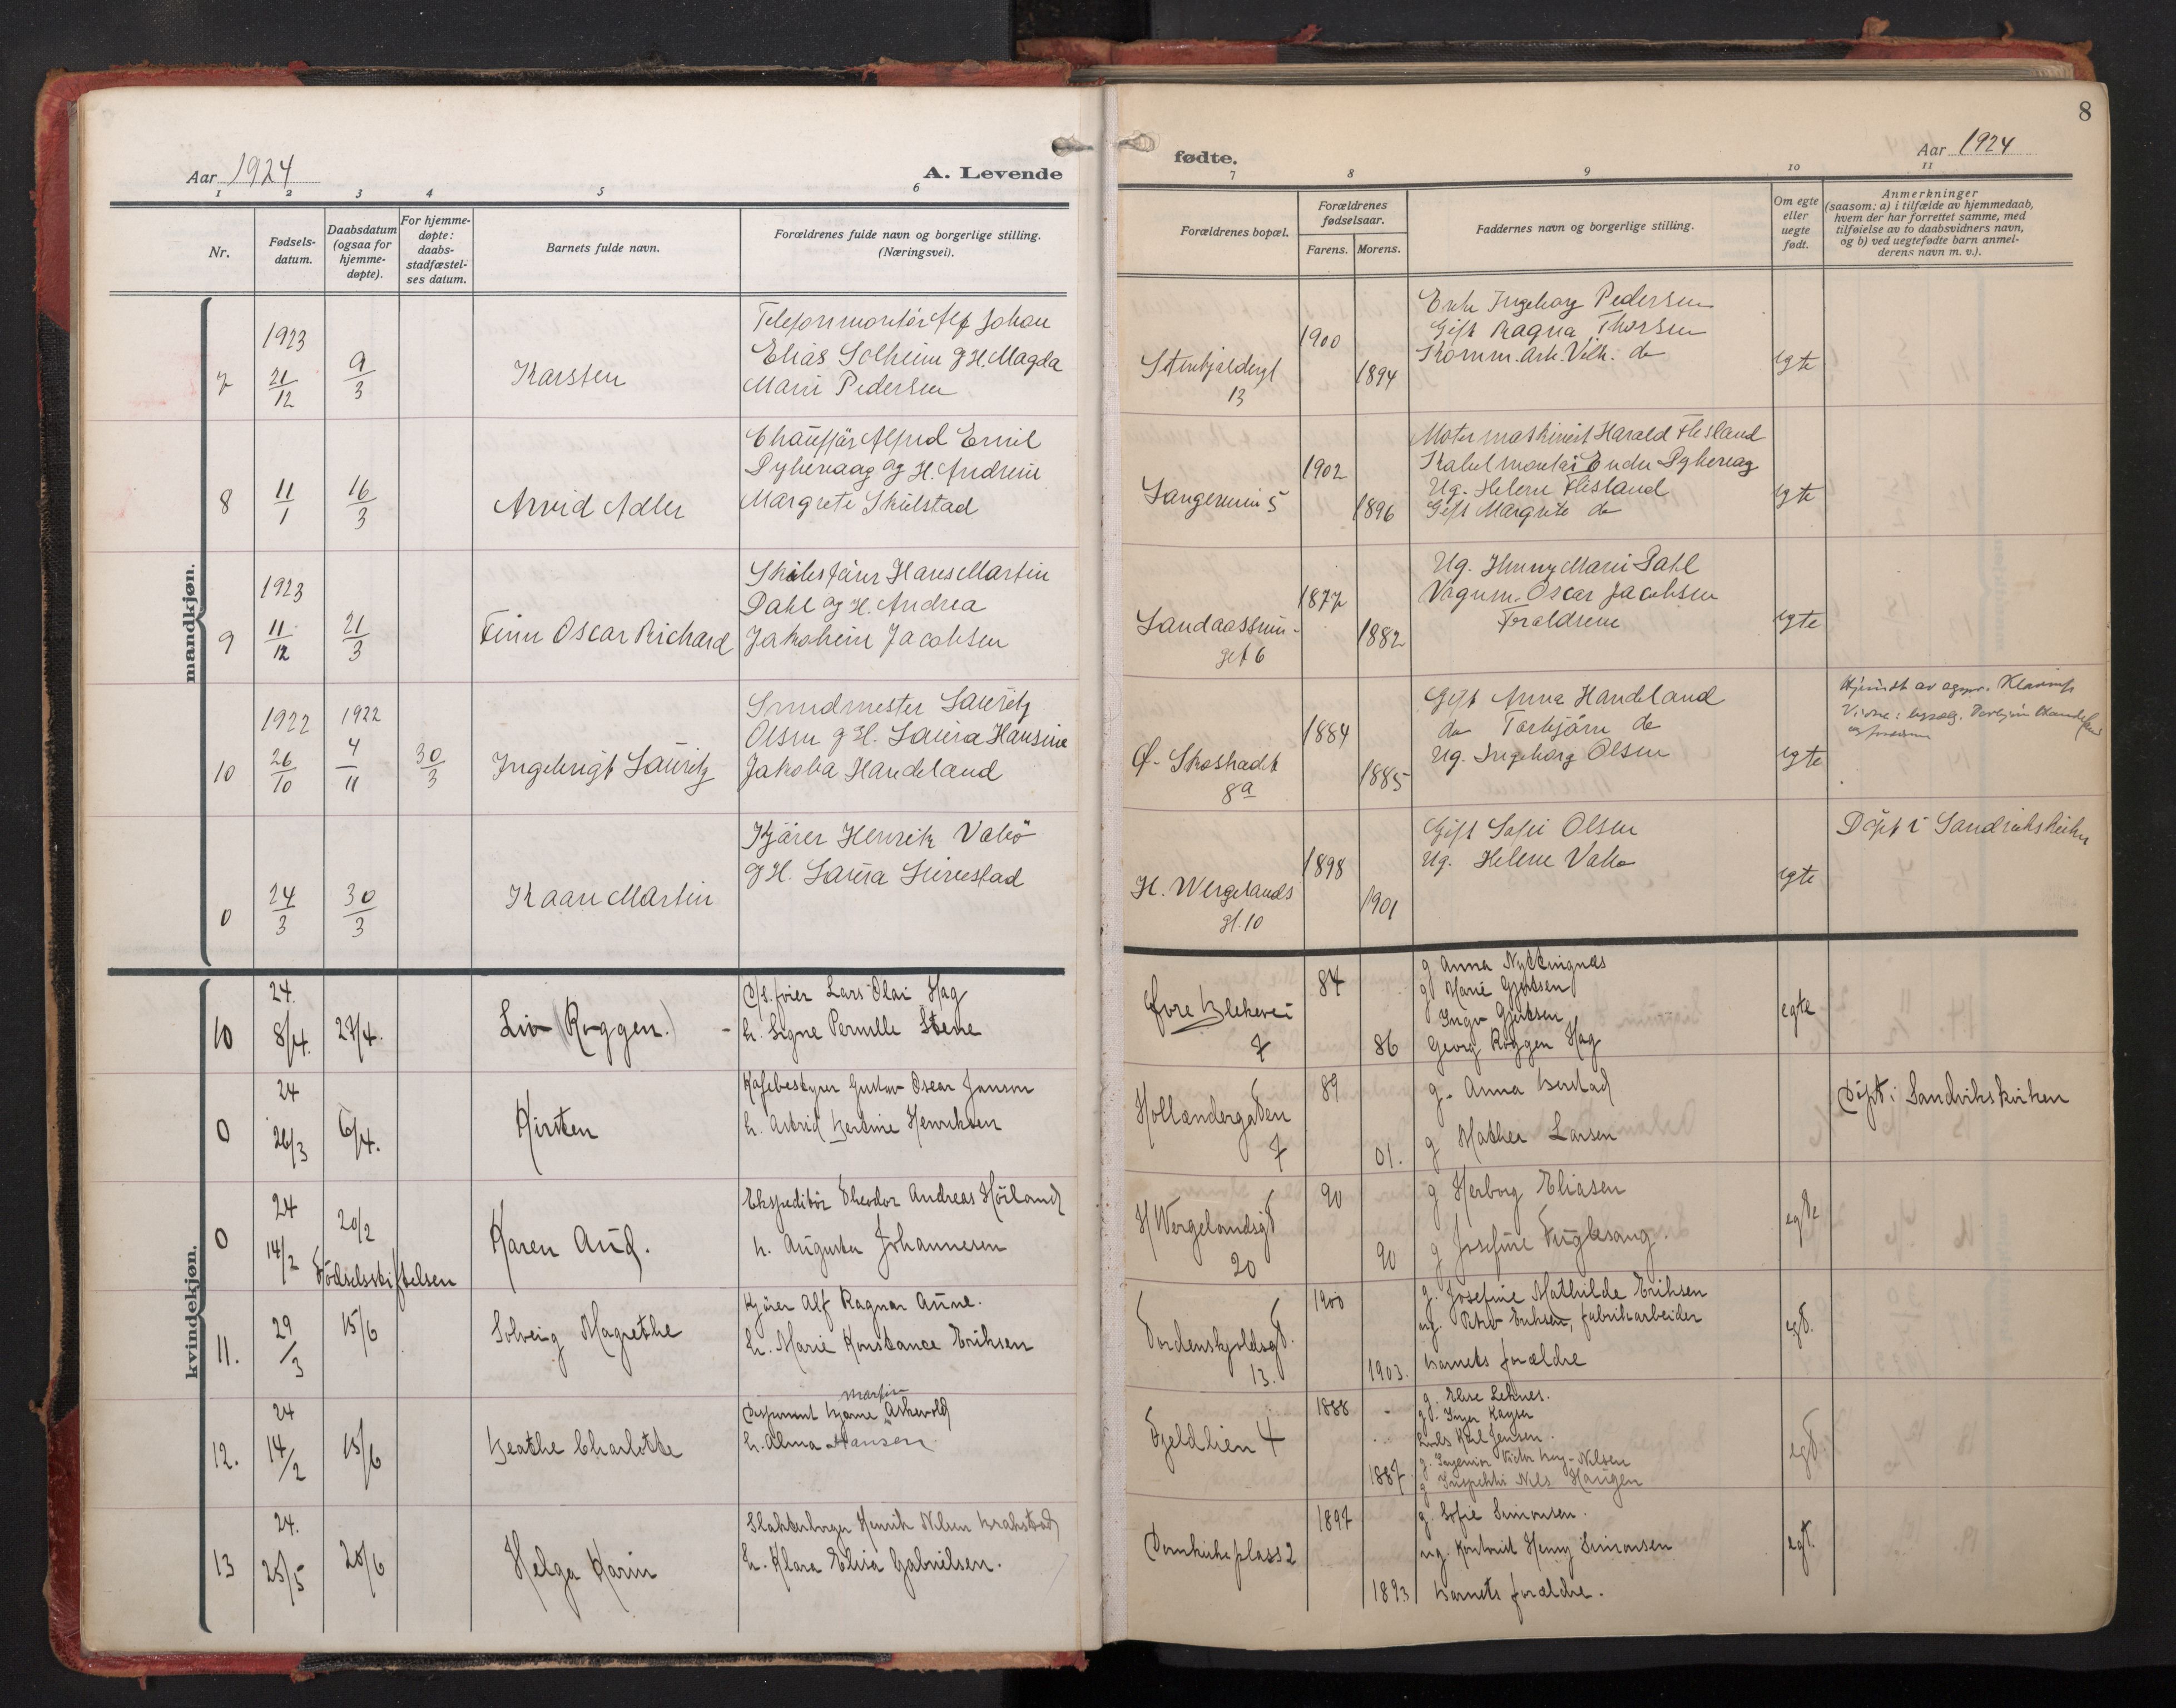 8
Aar 1924
A. Levende
fødte.
Aar 1924
1 2 3 4 5 6 7 8 9 10 11
Nr.
Fødsels-
datum.
Daabsdatum
(ogsaa for
hjemme-
døpte).
For hjemme-
døpte:
daabs-
stadfæstel-
ses datum.
Barnets fulde navn.
Forældrenes fulde navn og borgerlige stilling.
(Næringsvei).
Forældrenes bopæl.
Forældrenes
fødselsaar.
Farens. Morens.
Faddernes navn og borgerlige stilling.
Om egte
eller
uegte
født.
Anmerkninger
(saasom: a) i tilfælde av hjemmedaab,
hvem der har forrettet samme, med
tilføielse av to daabsvidners navn,
og b) ved uegtefødte barn anmel-
derens navn m. v.).
mandkjøn.
7
1923
21/12
9/3
Karsten
Telefonmontör Alf Johan
Elias Solheim g H. Magda
Marie Pedersen
Stenkjeldergt
13
1900
1894
Enke Ingeborg Pedersen
Gift Ragna Thorsen
Komm. arb. Vilh. do
egte
8
11/1
16/3
Arvid Adler
Chauffär Alfred Emil
Dyhevaag og H. Andrine
Margrete Skulstad
Langeveien 5
1902
1896
Motormaskinist Harald Flesland
Kabelmontör Endre Dyhevaag
Ug. Helene Flesland
Gift Margrete do
egte
9
1923
11/12
21/3
Finn Oscar Richard
Skibsförer Hans Martin
Dahl og H. Andrea
Jakobine Jacobsen
Landaassvin-
get 6
1877
1882
Ug. Henny Marie Dahl
Vognm. Oscar Jacobsen
Forældrene
egte
10
1922
26/10
1922
4/11
30/3
Ingebrigt Lauritz
Smedmester Lauritz
Olsen g H. Laura Hansine
Jakoba Handeland
Ø. Skostradt
8a
1884
1885
Gift Anna Handeland
do Torbjörn do
Ug. Ingeborg Olsen
egte
0
24/3
30/3
Kaare Martin
Kjörer Henrik Valö
g H. Laura
H. Wergelands
gt. 10
1898
1901
Gift Sofie Olsen
Ug. Helene Valø
egte
Döpt i Sandvikskirken
kvindekjøn.
10
24.
8/4.
27/4.
Liv (Roggen.)
Lars Olai Hag
h. Signe Pernille Stene
Øvre Blekevei
7
84
86
g Anna Nyttingnes
g Marie Gjertsen
Ingv Gjertsen
Georg Roggen Hag
egte
0
24
26/3
6/4.
Kirsten
Kafebestyrer Gustav Oscar Jonson
h. Astrid Bertine Henriksen
Hollændergaden
7
89
01.
g. Anna Berstad
g Mathea Larsen
Döpt i Sandvikskirken
0
24
14/2
20/2
Födselsstiftelsen
Karen Aud.
Ekspeditör Theodor Andreas Höiland
h. Augusta Johannesen
H Wergelandsgt
20
90
90
g Herborg Eliasen
g Josefine Fuglesang.
egte
11.
29/3
15/6
Solveig Magrethe
Kjörer Alf Ragnar Aune.
h. Marie Konstance Eriksen
Tordenskjoldsgt.
13.
1900
1903.
g. Josefine Mathilde Eriksen
ug. Eriksen, fabrikarbeider
barnets forældre
egt.
12.
24
14/2
15/6
Beathe Charlotte
Martin
Disponent Bjarne Askevold
h. Alma Hansen
Fjeldlien 4
1888
1887.
g. Else Lehnes.
g. Inger Kayser
Karl Jensen.
g. Ingeniör Victor Nilsen
g Inspektör Nils Haugen
egt.
13
24.
25/5
28/6
Helga Karin
Slakterborger Henrik Nilsen Brakstad
h. Klara Elisa Gabrielsen.
Domkirkeplass 2
1897
1893
g. Sofie Simonsen.
ug. Kontorist Henry Simonsen
barnets forældre.
egt.